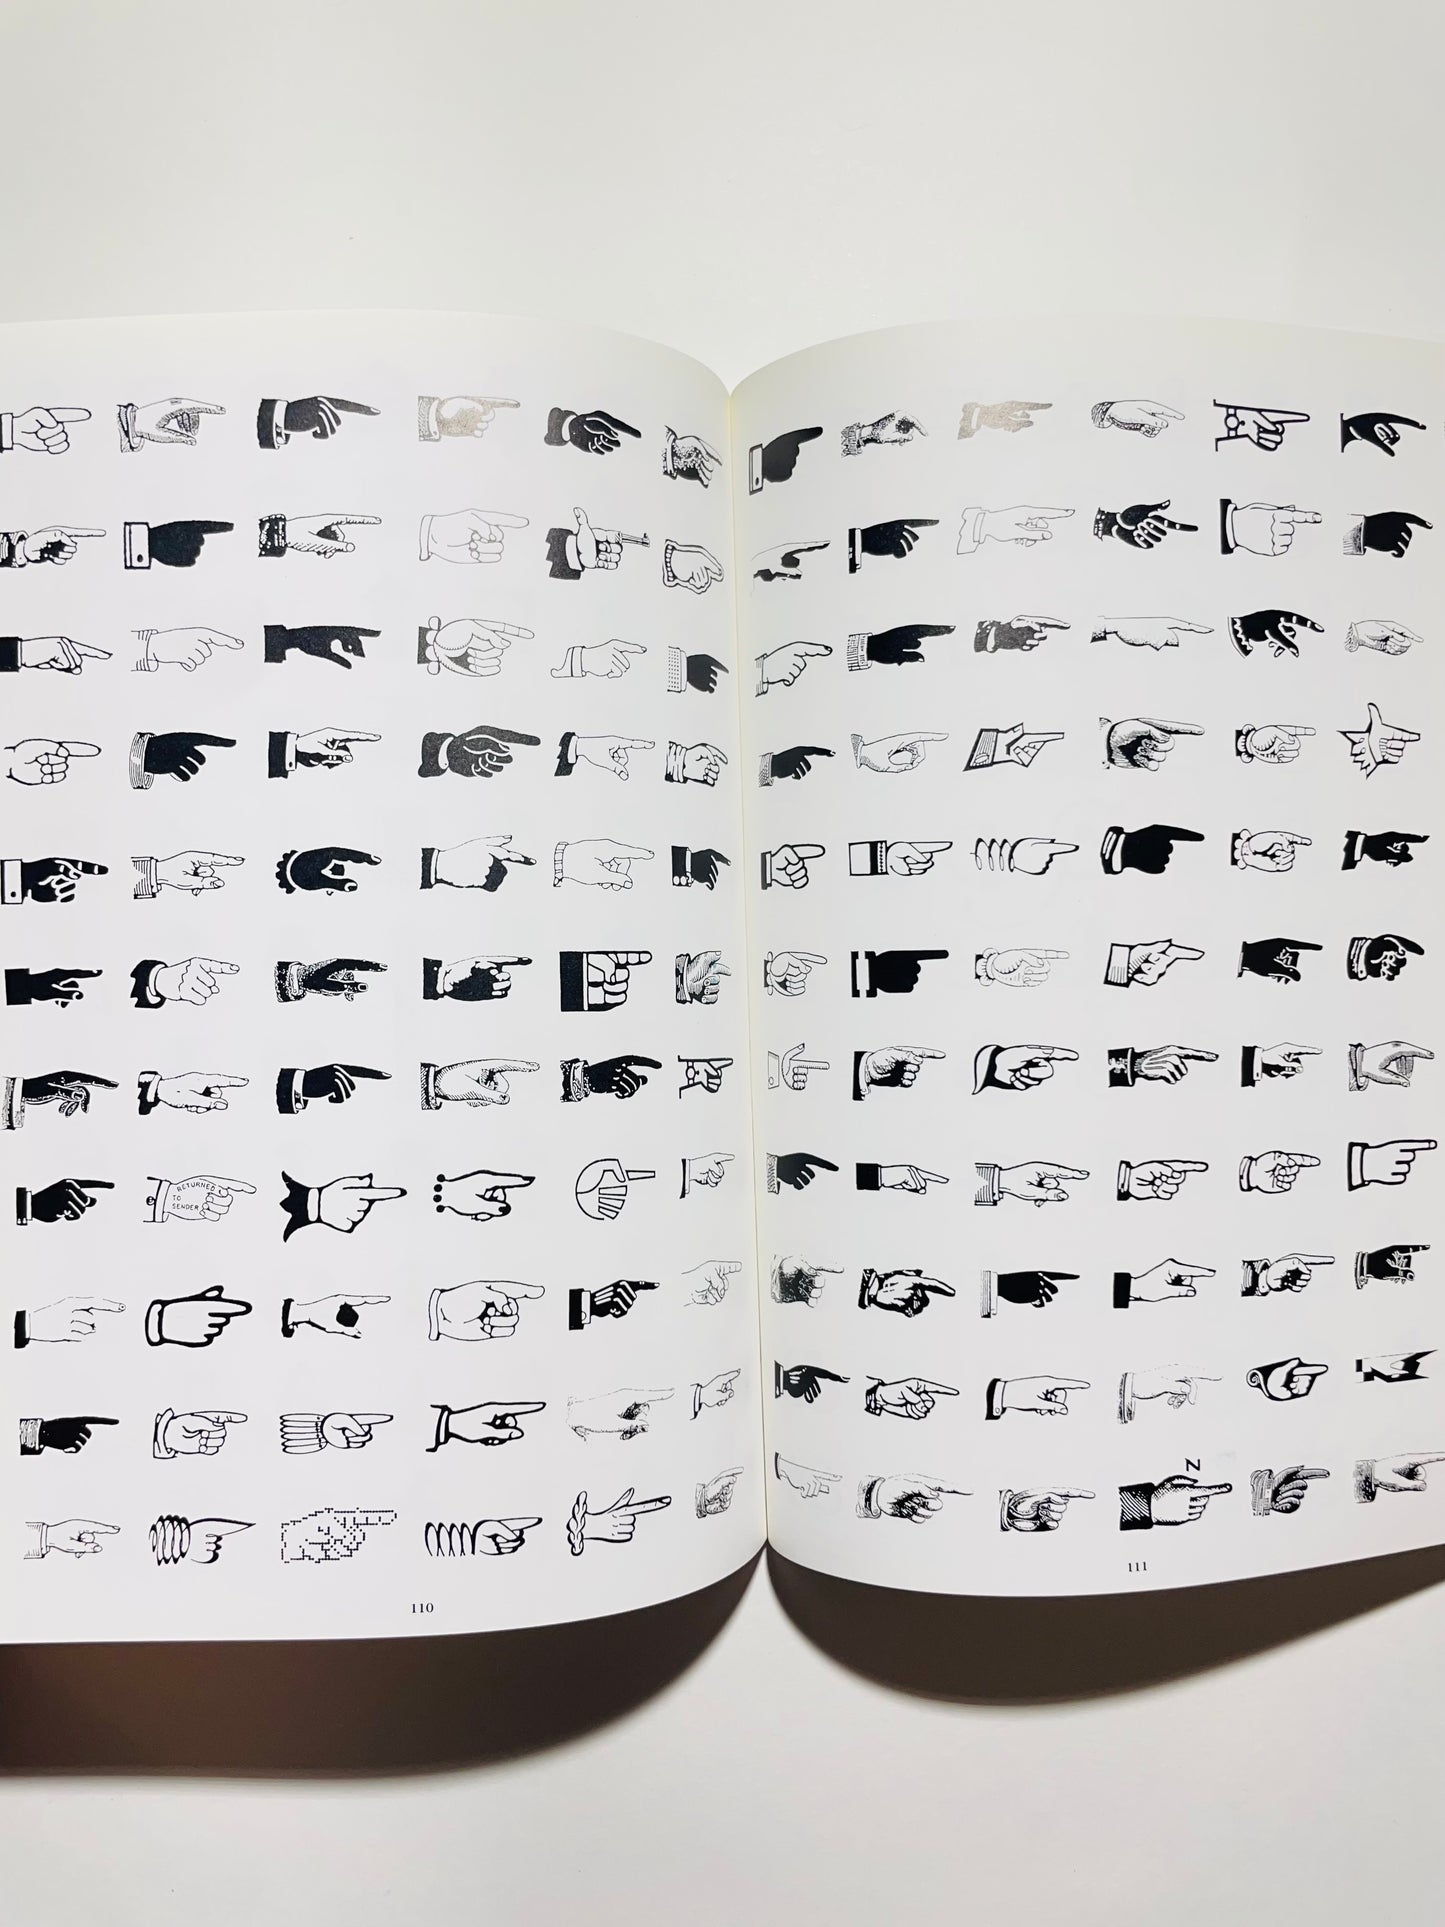 RETURNED
TO
SENDER
N
110
111